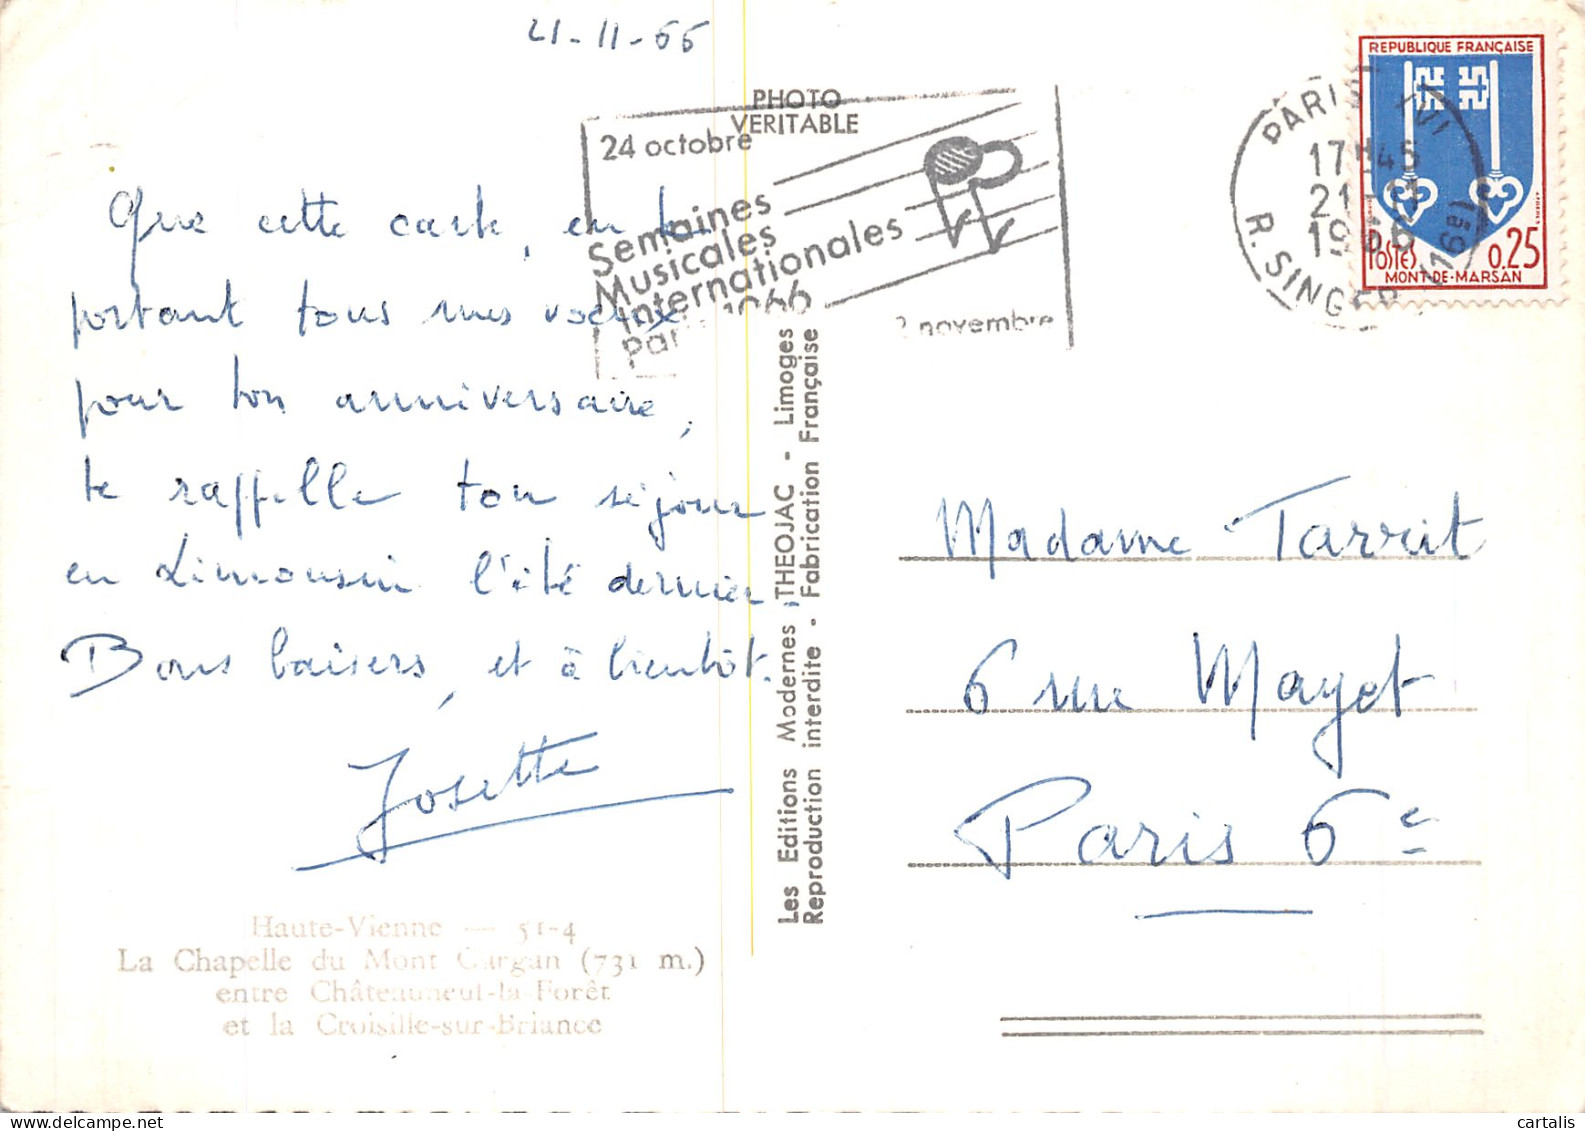 21-11-66
PHOTO
VERITABLE
24 octobre
Semaines
Musicales
Internationales
Paris 1966
novembre
PARIS XVI
17H45
21-11
1966
R. SINGER
REPUBLIQUE FRANÇAISE
POSTES 0,25
MONT-DE-MARSAN
Que cette carte, en te
portant tous mes voeux
pour ton anniversaire,
te rappelle ton séjour
en Limousin l'été dernier.
Bons baisers, et à bientôt.
Josette
Haute-Vienne — 51-4
La Chapelle du Mont Gargan (731 m.)
entre Châteauneuf-la-Forêt
et la Croisille-sur-Briance
Les Editions Modernes THEOJAC - Limoges
Reproduction interdite - Fabrication Française
Madame Tarrit
6 rue Mayet
Paris 6e
cartalis